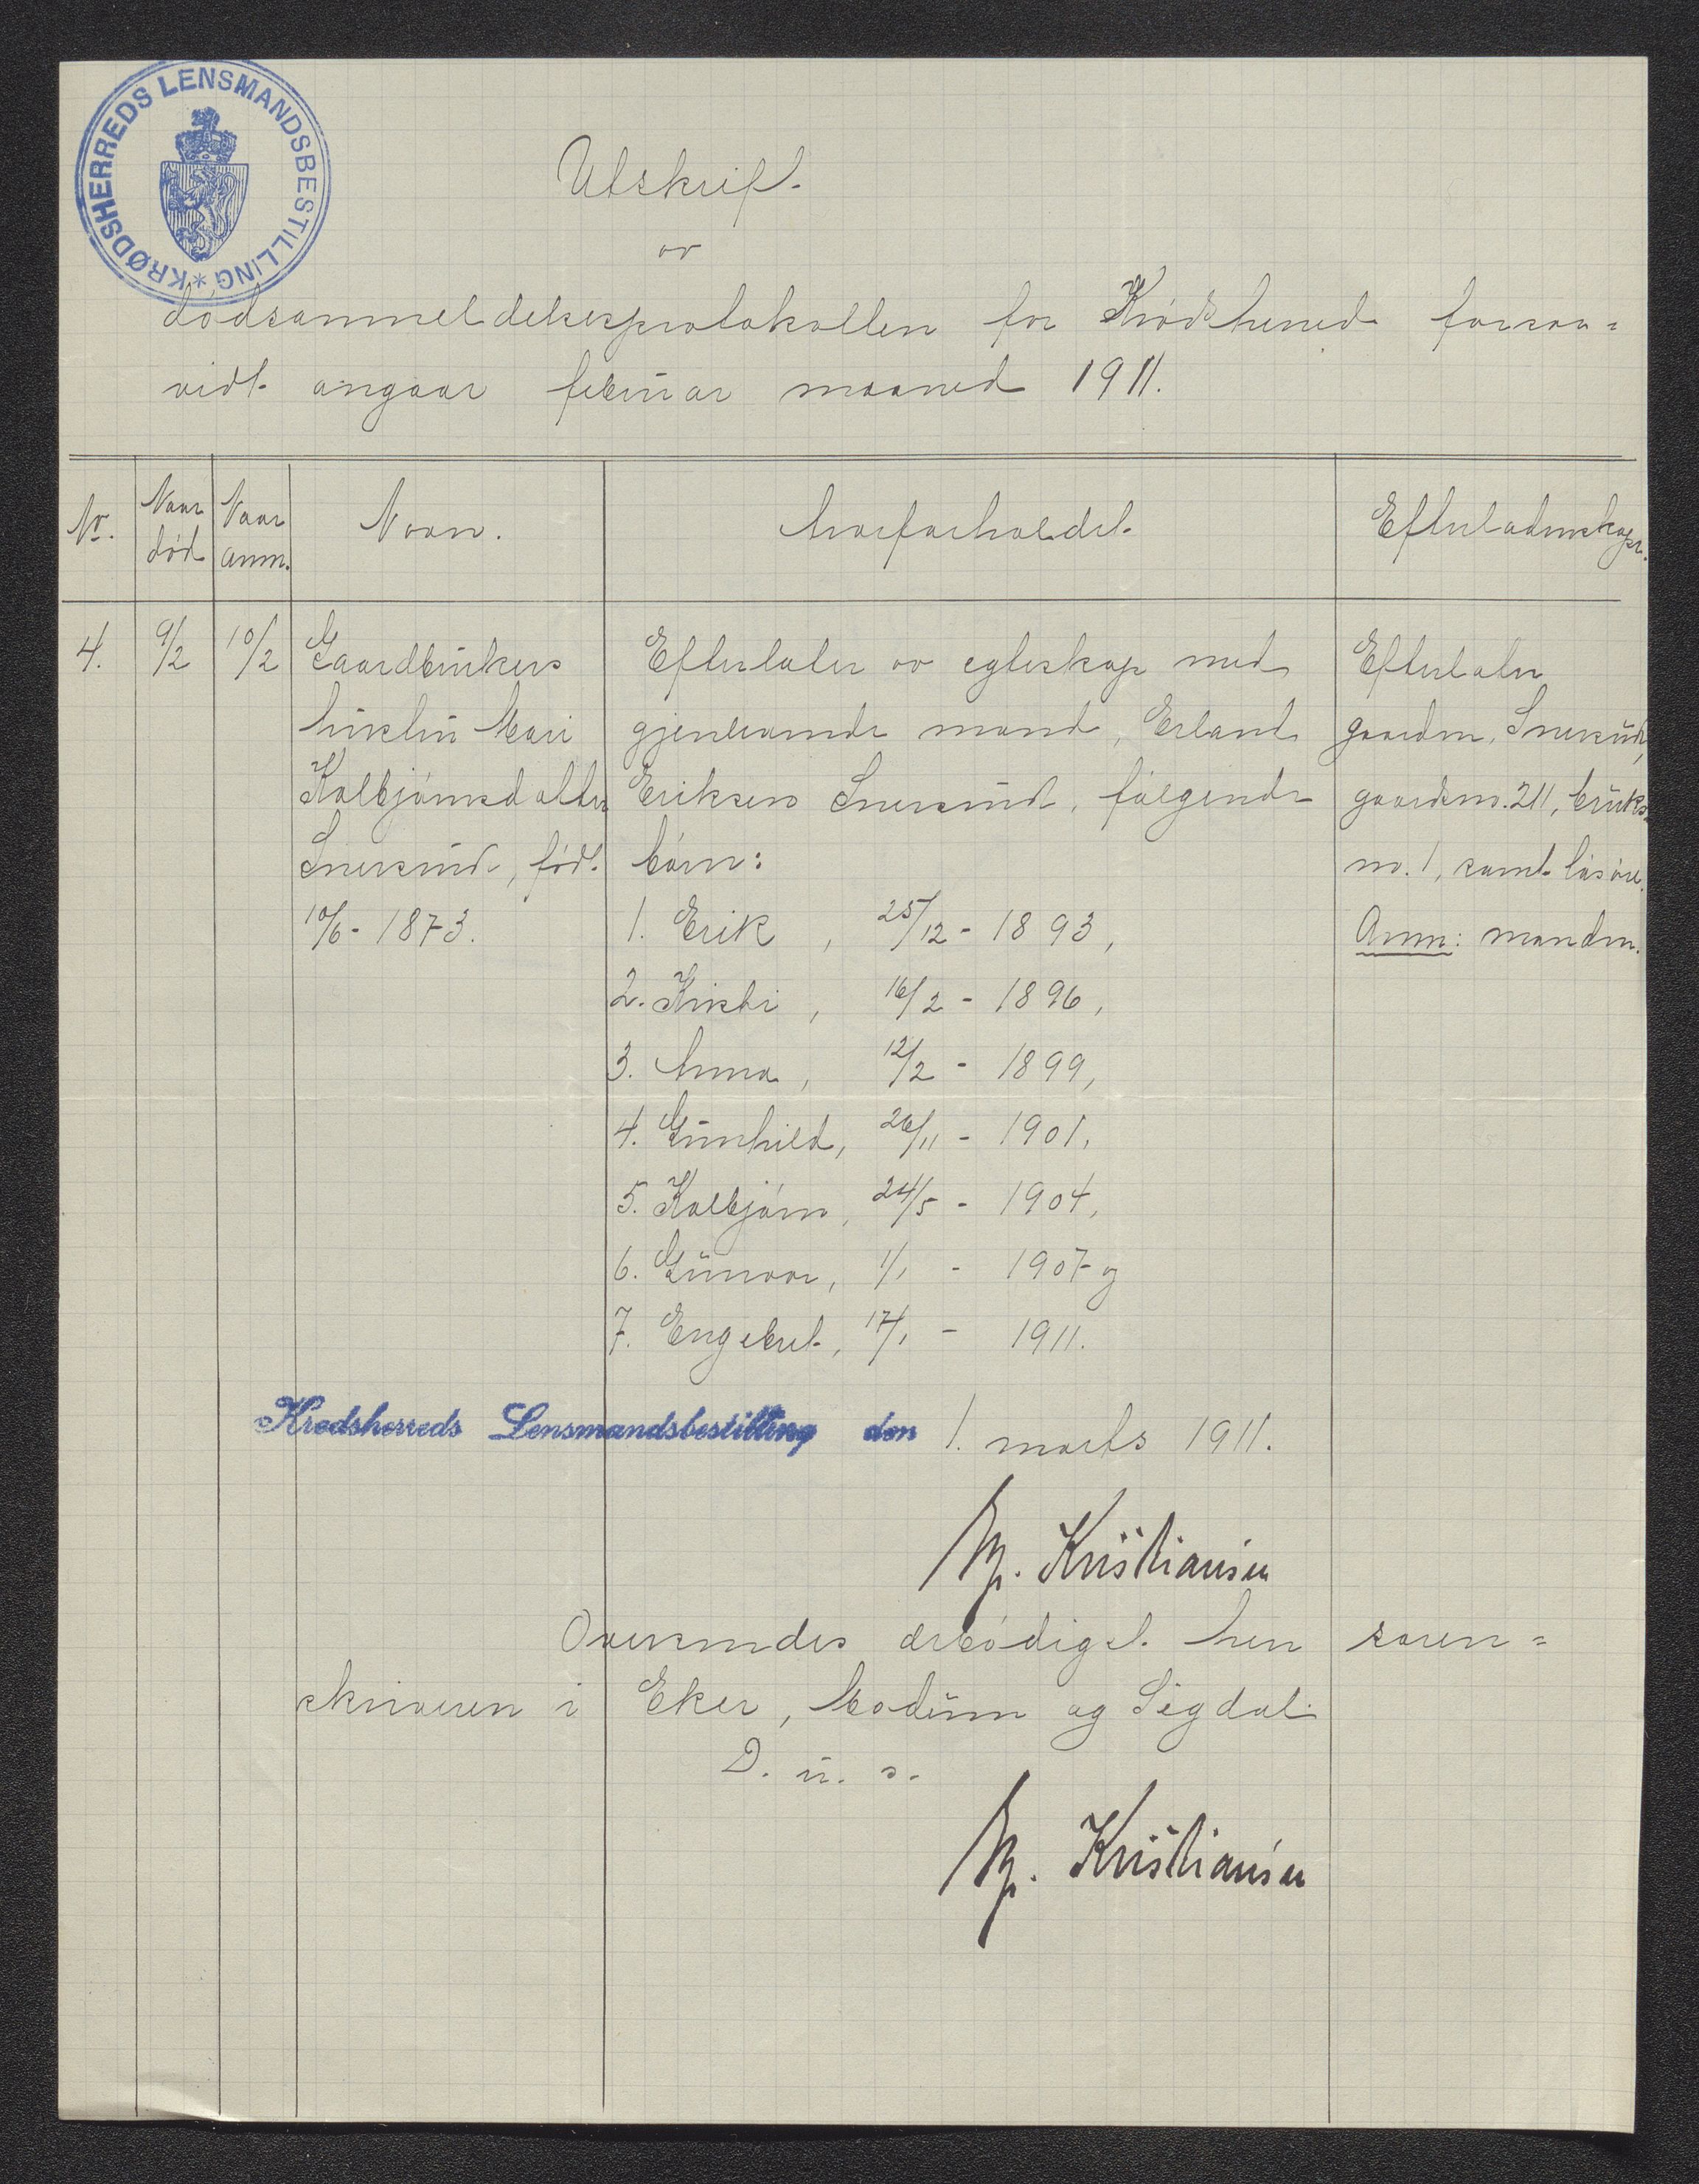 KRØDSHERREDS LENSMANDSBESTILLING *
Utskrift
av
dødsanmeldelsesprotokollen for Krødsherred forsaa-
vidt angaar februar maaned 1911.
No. Naar død Naar anm. Navn. Arveforholdet. Efterladenskaper.
4. 9/2 10/2 Gaardbrukers Efterlater av egteskap med Efterlater
hustru Mari gjenlevende mand, Erland gaarden, Snersrud,
Kolbjørnsdatter Eriksen Snersrud, følgende gaardsno. 211, bruks-
Snersrud, født børn: no. 1, samt løsøre.
10/6 - 1873. 1. Erik, 25/12 - 1893, Anm: manden.
2. Kristi, 16/2 - 1896,
3. Anna, 12/2 - 1899,
4. Gunhild, 26/11 - 1901,
5. Kolbjørn, 24/5 - 1904,
6. Gunvor, 1/1 - 1907 og
7. Engebret, 17/1 - 1911.
Krødsherreds Lensmandsbestilling den 1. marts 1911.
Kristiansen
Oversendes ærbødigst herr soren-
skriveren i Eker, Modum og Sigdal.
D. u. s.
Kristiansen